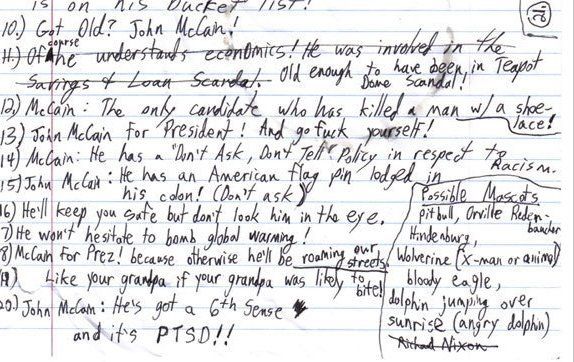 is on his bucket list!
10.) Got Old? John McCain!
11.) Of course he understands economics! He was involved in the
Savings & Loan Scandal. Old enough to have been in Teapot
Dome Scandal!
12) McCain: The only candidate who has killed a man w/ a shoe-
lace!
13) John McCain for President! And go fuck yourself!
14) McCain: He has a "Don't Ask, Don't Tell" Policy in respect to
Racism.
15) John McCain: He has an American flag pin lodged in
his colon! (Don't ask)
16) He'll keep you safe but don't look him in the eye.
7) He won't hesitate to bomb global warming!
8) McCain for Prez! because otherwise he'll be roaming our
streets
19) Like your grandpa if your grandpa was likely to
bite!
20.) John McCain: He's got a 6th Sense
and it's PTSD!!
Possible Mascots
pitbull, Orville Reden-
bacher
Hindenburg,
Wolverine (X-man or animal)
bloody eagle,
dolphin jumping over
sunrise (angry dolphin)
Richard Nixon